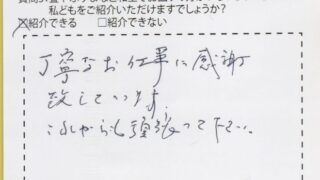 私どもをご紹介いただけますでしょうか?
☒紹介できる □紹介できない
丁寧なお仕事に感謝
致しています。
これからも頑張って下さい。